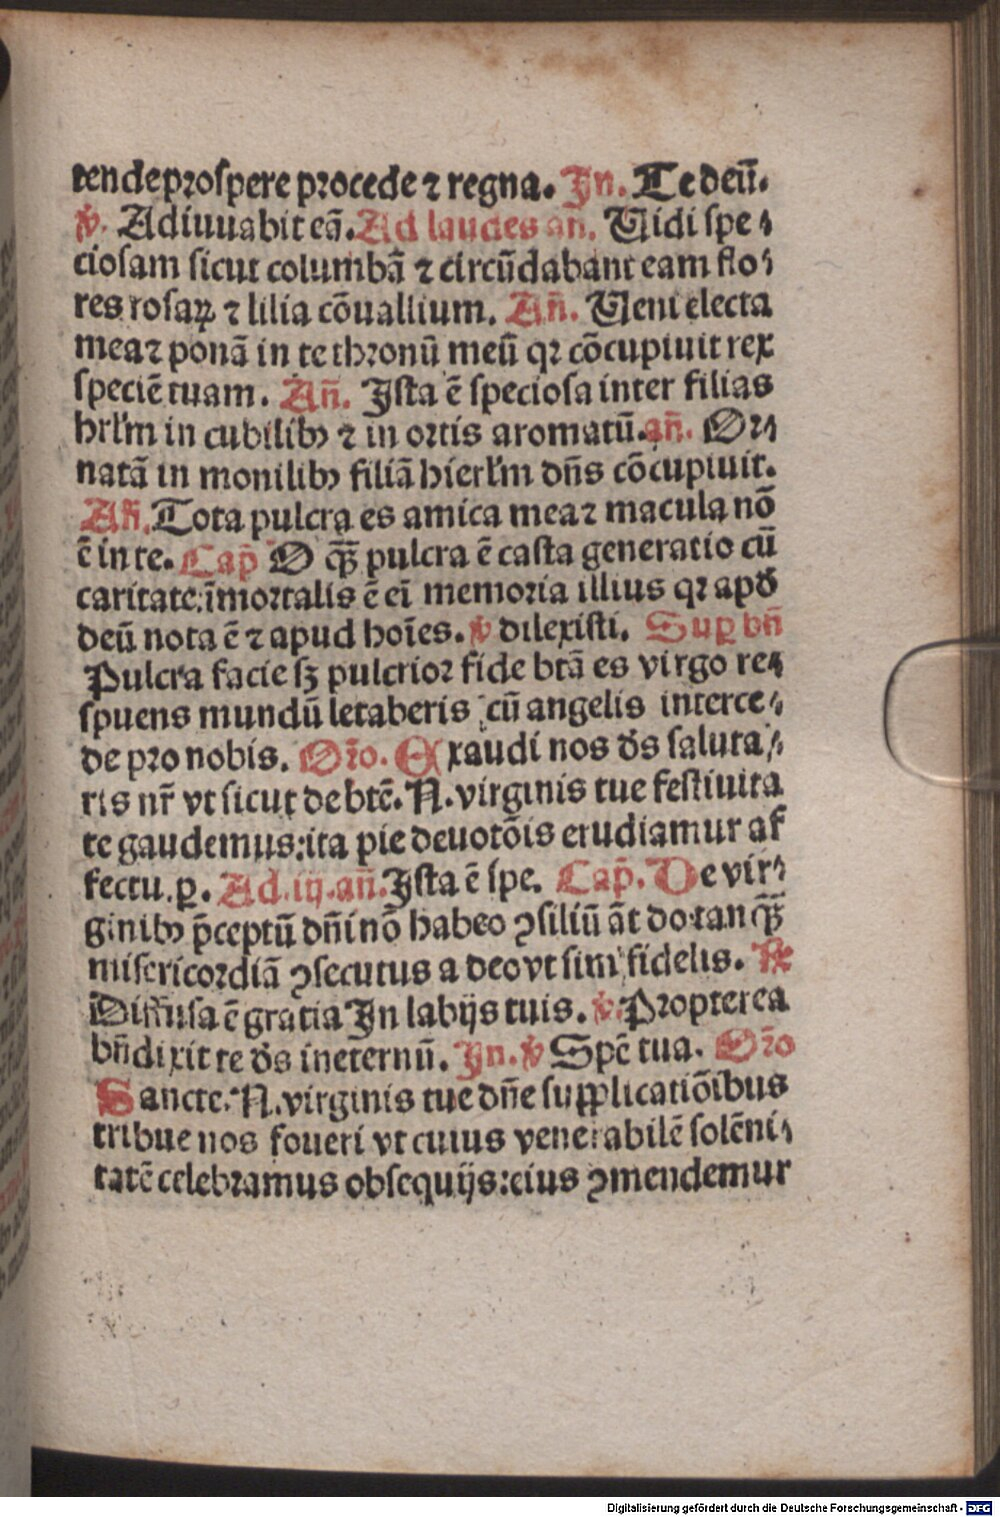 tende prospere procede ⁊ regna. Jn. Te deū.
℣. Adiuuabit eā. Ad laudes an̄. Uidi spe⸗
ciosam sicut columbā ⁊ circūdabant eam flo⸗
res rosaꝝ ⁊ lilia cōuallium. An̄. Ueni electa
mea⁊ ponā in te thronū meū qꝛ cōcupiuit rex
speciē tuam. An̄. Jsta ē speciosa inter filias
hrl'm in cubilibꝰ ⁊ in ortis aromatū. an̄. Or⸗
natā in monilibꝰ filiā hierl'm dn̄s cōcupiuit.
An̄. Tota pulcra es amica mea⁊ macula nō
ē in te. Cap̄ O q̄ꝫ pulcra ē casta generatio cū
caritate: īmortalis ē eī memoria illius qꝛ apd̄
deū nota ē ⁊ apud hoīes. ℣ dilexisti. Suꝑ bn̄
Pulcra facie sꝫ pulcrior fide btā es virgo re⸗
spuens mundū letaberis cū angelis interce⸗
de pro nobis. Or̄o. Exaudi nos d̄s saluta⸗
ris nr̄ vt sicut de btē. N. virginis tue festiuita
te gaudemus: ita pie deuotōis erudiamur af
fectu. ꝑ. Ad .iij. an̄. Jsta ē spe. Cap̄. De vir⸗
ginibꝰ p̄ceptū dn̄i nō habeo ꝯsiliū āt do tanq̄ꝫ
misericordiā ꝯsecutus a deo vt sim fidelis. ℟
Diffusa ē gratia Jn labijs tuis. ℣. Propterea
bn̄dixit te d̄s in eternū. Jn. ℣ Spē tua. Or̄o
Sancte. N. virginis tue dn̄e supplicatiōibus
tribue nos foueri vt cuius venerabilē solēni⸗
tatē celebramus obsequijs: eius ꝯmendemur
Digitalisierung gefördert durch die Deutsche Forschungsgemeinschaft - DFG